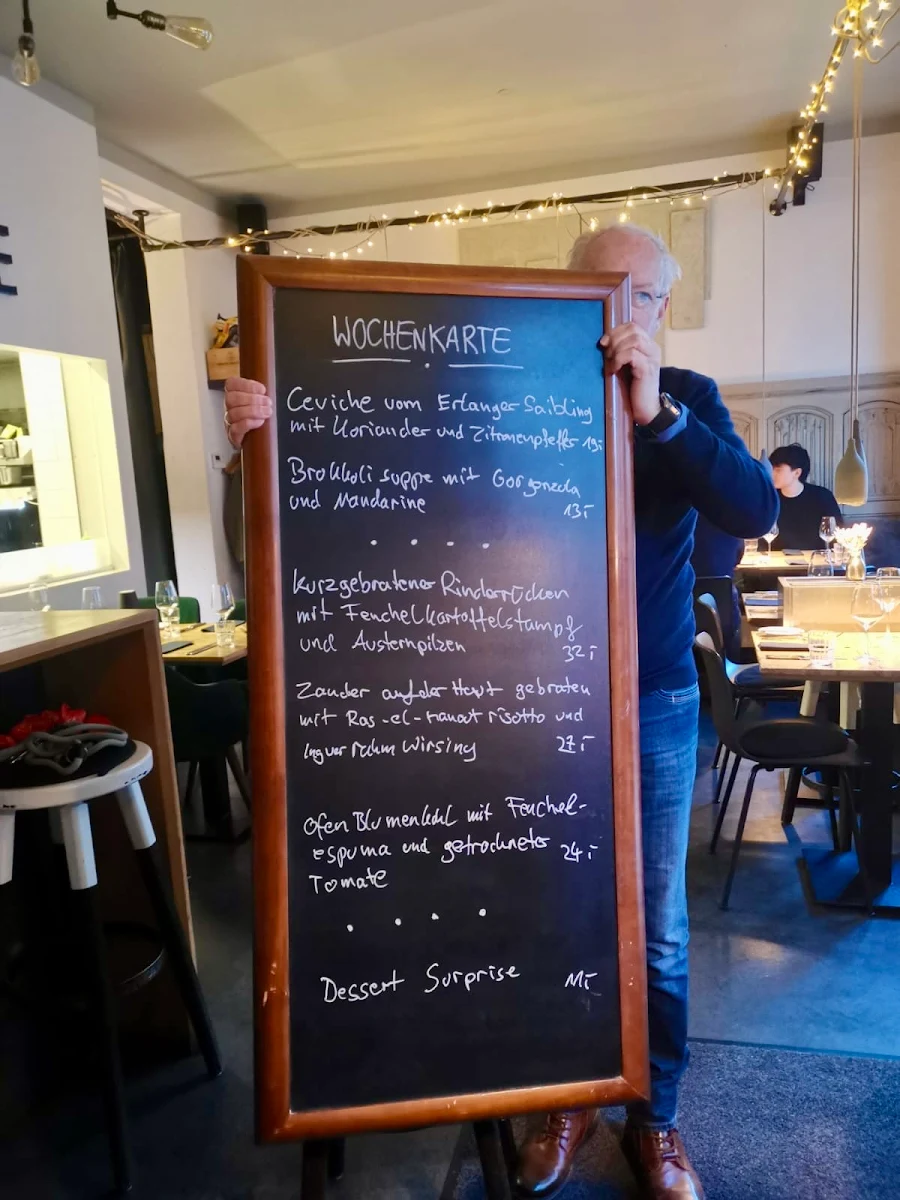 WOCHENKARTE
Ceviche vom Erlanger Saibling
mit Koriander und Zitronenpfeffer 19,-
Brokkoli suppe mit Gorgonzola
und Mandarine 13,-
. . . .
kurzgebratener Rinderrücken
mit Fenchelkartoffelstampf
und Austernpilzen 32,-
Zander auf der Haut gebraten
mit Ras-el-hanout risotto und
Ingwer rahm wirsing 27,-
Ofen Blumenkohl mit Fenchel-
espuma und getrockneter 24,-
Tomate
. . . .
Dessert Surprise 11,-